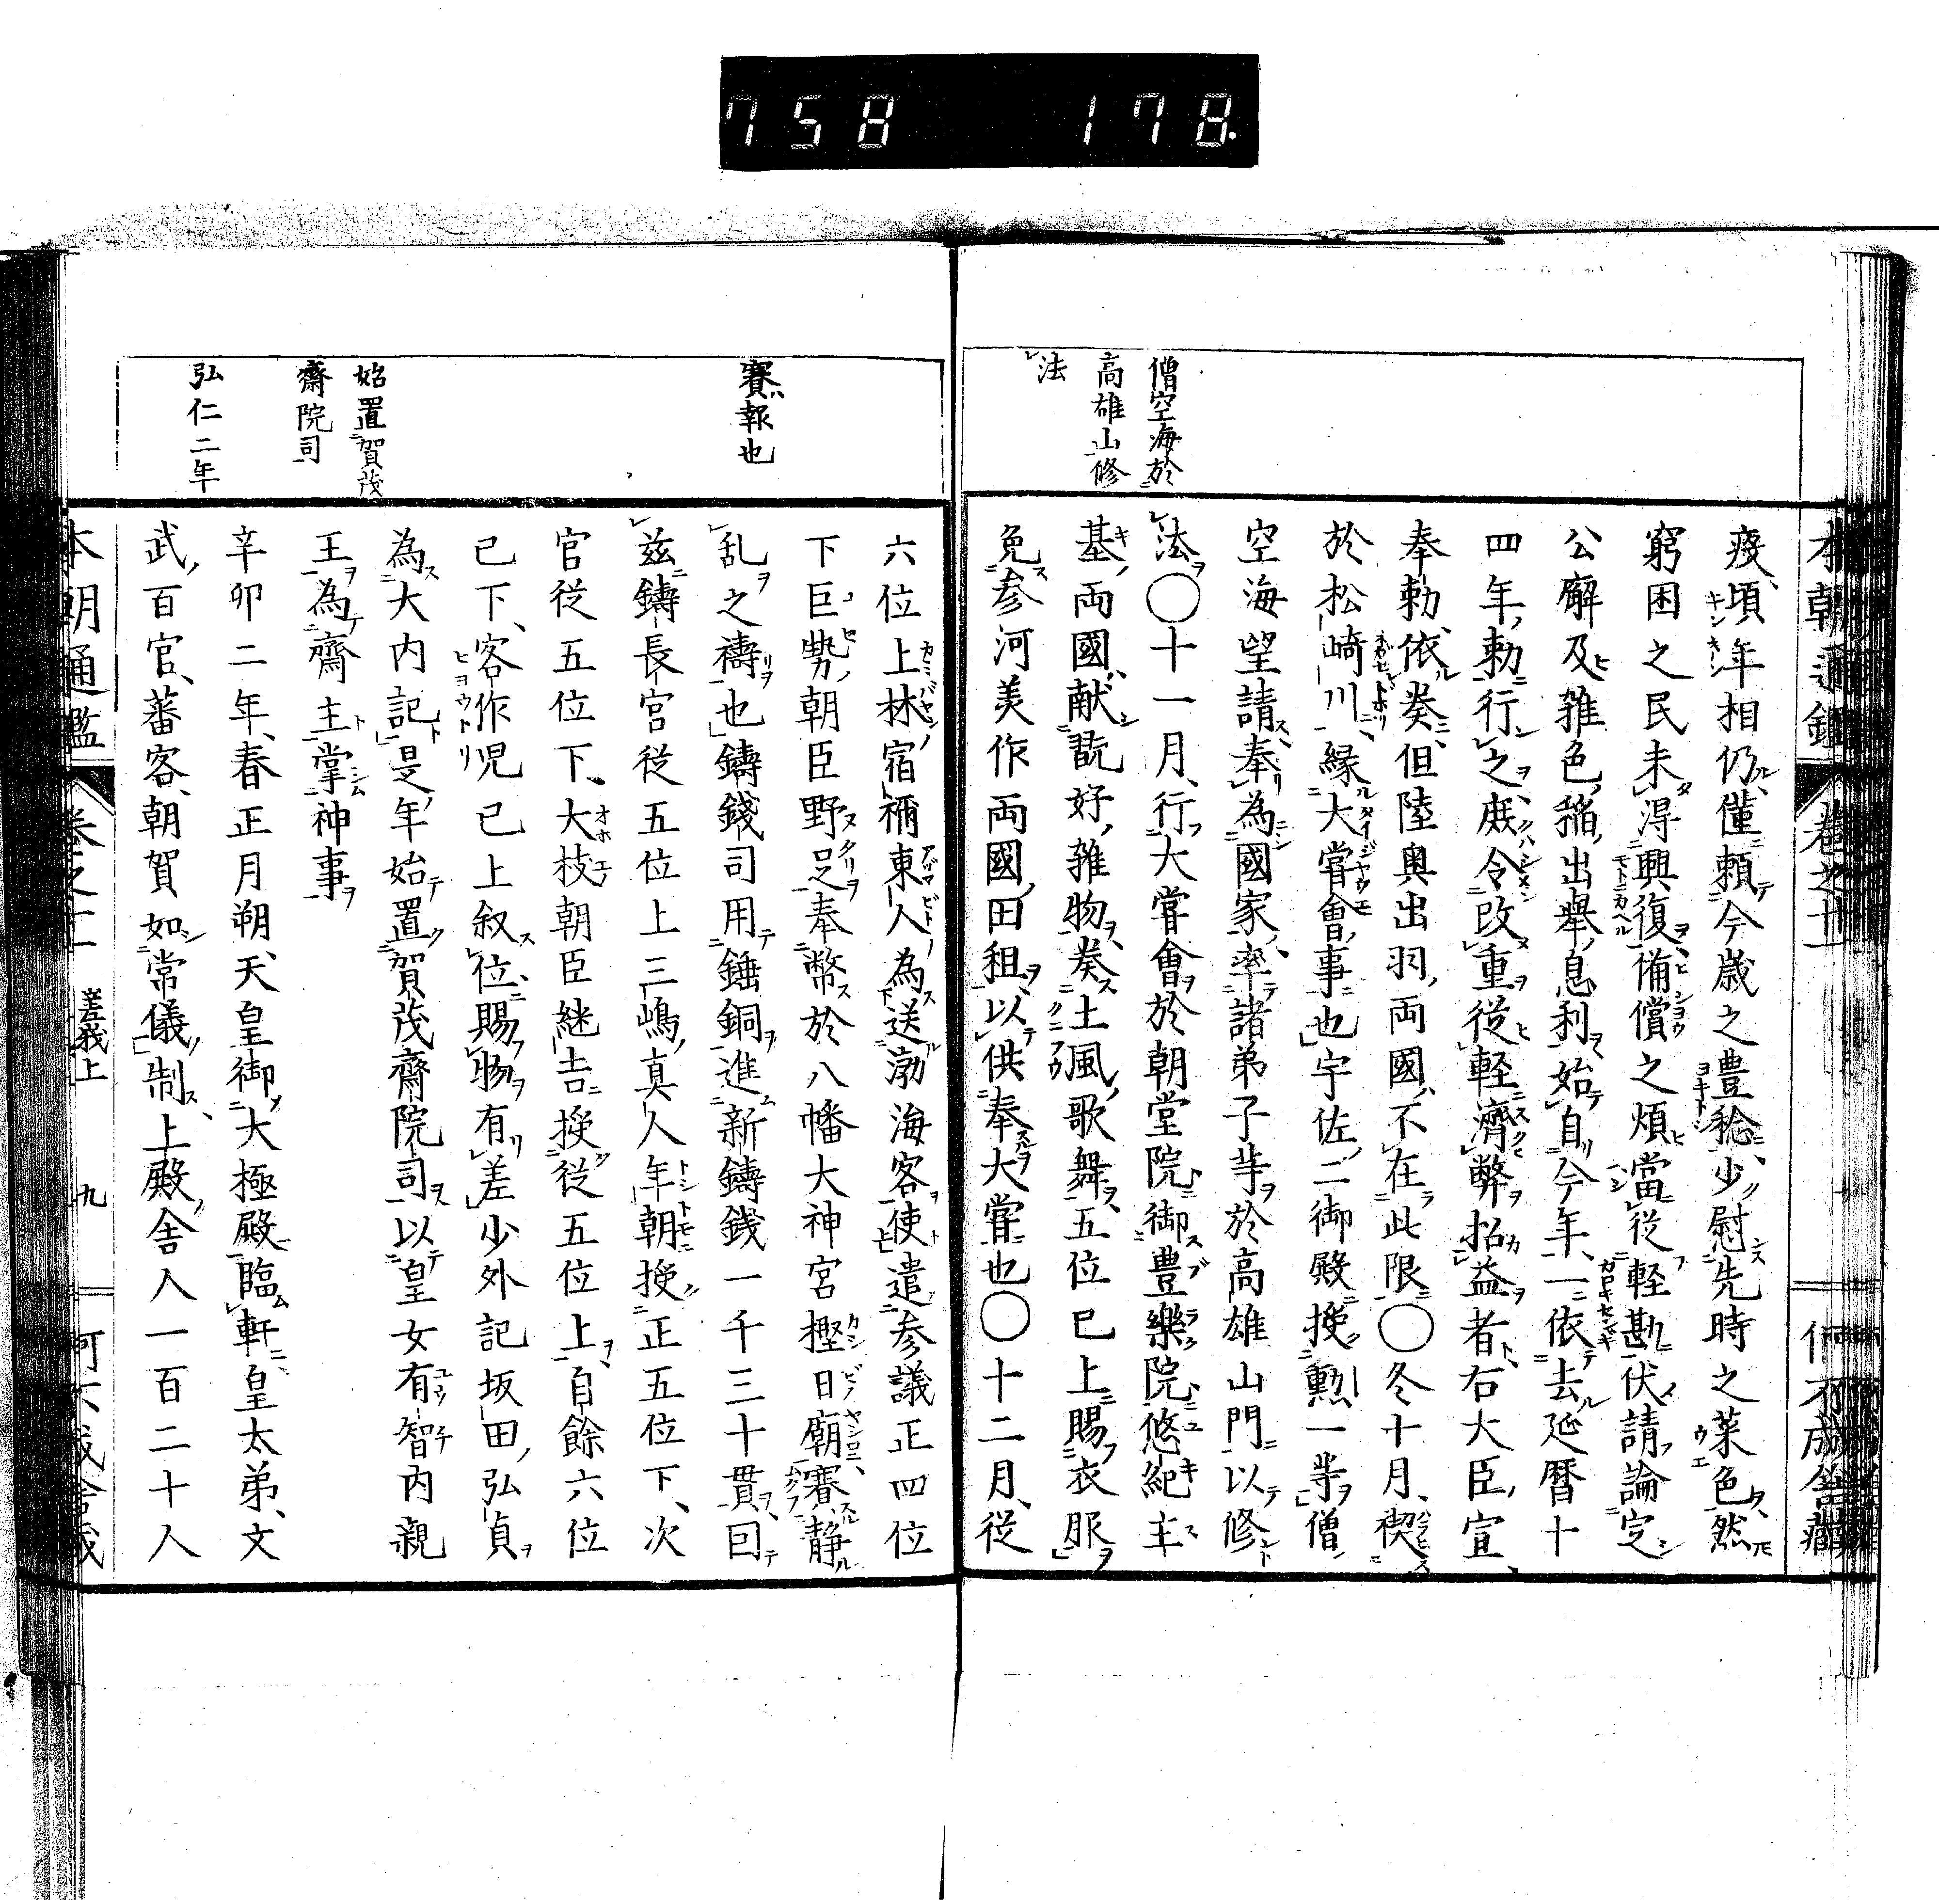 758 178.
僧空海於
高雄山修
法
疫頃年相仍僅頼今歳之豊稔少慰先時之菜色然
窮困之民未得興復備償之煩當從軽勘伏請論定
公廨及雑色稲出挙息利始自今年一依去延暦十
四年勅行之庶令改重從軽濟弊招益者右大臣宣
奉勅依奏但陸奥出羽両國不在此限〇冬十月禊
於松崎川縁大嘗會事也宇佐二御殿授勲一等僧
空海望請奉為國家率諸弟子等於高雄山門以修
法〇十一月行大嘗會於朝堂院御豊樂院悠紀主
基両國献翫好雑物奏土風歌舞五位已上賜衣服
免参河美作両國田租以供奉大嘗也〇十二月從
賽報也
始置賀茂
齋院司
弘仁二年
六位上林宿祢東人為送渤海客使遣参議正四位
下巨勢朝臣野足奉幣於八幡大神宮樫日廟賽静
乱之祷也鑄錢司用錘銅進新鑄銭一千三十貫囙
茲鑄長官從五位上三嶋真人年朝授正五位下次
官從五位下大枝朝臣継吉授從五位上自餘六位
已下客作児已上叙位賜物有差少外記坂田弘貞
為大内記是年始置賀茂齋院司以皇女有智内親
王為齋主掌神事
辛卯二年春正月朔天皇御大極殿臨軒皇太弟文
武百官蕃客朝賀如常儀制上殿舎人一百二十人
本朝通鑑
九